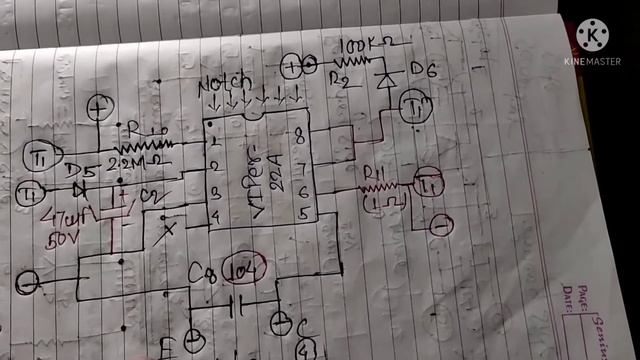 KINEMASTER
100KΩ
R2
D6
T1
Notch
R10
2.2MΩ
T1
D5
T1
C2
47uf
50V
VIPer
22A
1
2
3
4
8
7
6
5
R11
(1Ω)
T1
X
C8
104
E
C
4
PAGE:
DATE: